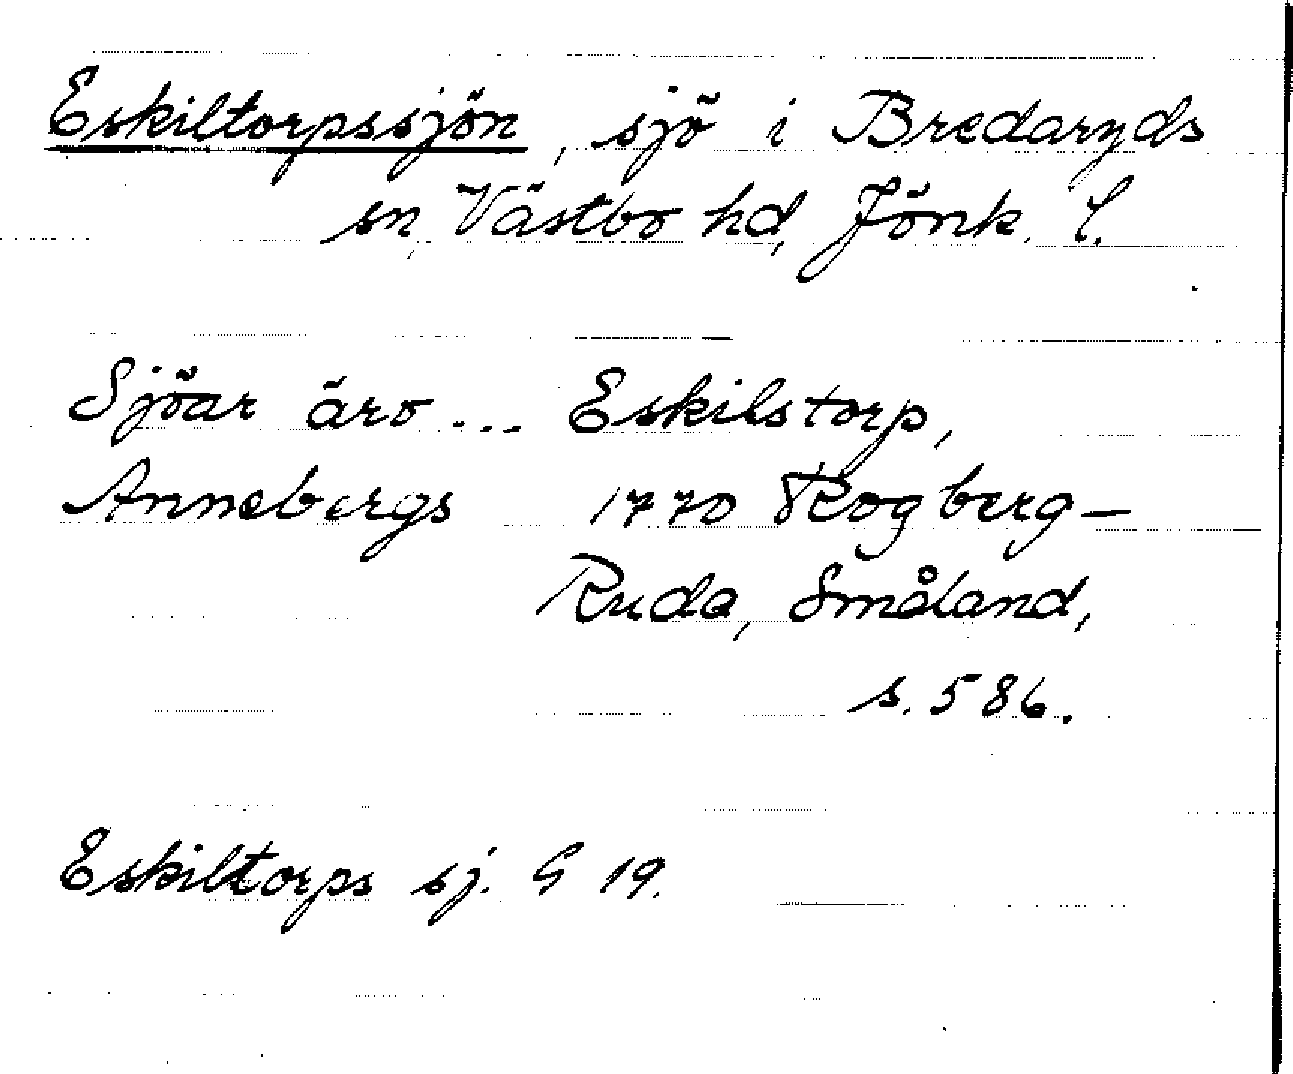 Eskiltorpssjön, sjö i Bredaryds
sn, Västbo hd, Jönk. l.
Sjöar äro ... Eskilstorp,
Annebergs 1770 Rogberg-
Ruda, Småland,
s. 586.
Eskiltorps sj. G 19.